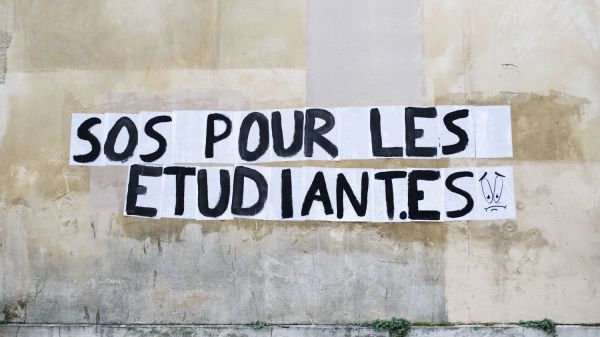 SOS POUR LES
ETUDIANT.ES